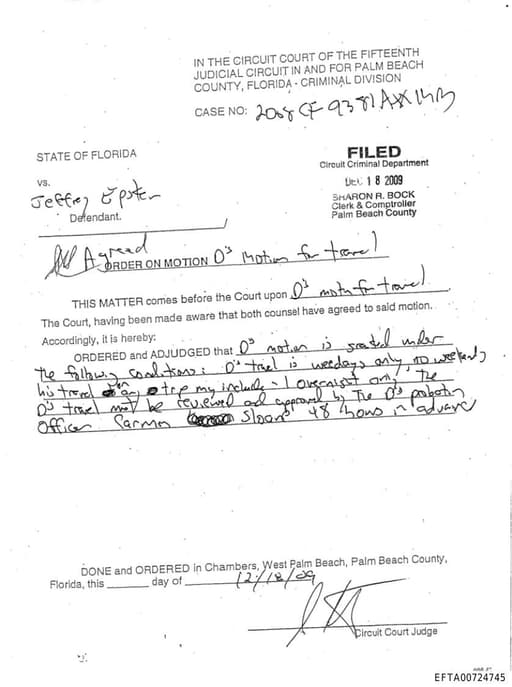 IN THE CIRCUIT COURT OF THE FIFTEENTH
JUDICIAL CIRCUIT IN AND FOR PALM BEACH
COUNTY, FLORIDA - CRIMINAL DIVISION
CASE NO: 2008 CF 9381 AXX MB
STATE OF FLORIDA
vs.
Jeffrey Epstein
Defendant.
FILED
Circuit Criminal Department
DEC 18 2009
SHARON R. BOCK
Clerk & Comptroller
Palm Beach County
Agreed
ORDER ON MOTION D's Motion for travel
THIS MATTER comes before the Court upon D's motion for travel
The Court, having been made aware that both counsel have agreed to said motion.
Accordingly, it is hereby:
ORDERED and ADJUDGED that D's motion is granted under
the following conditions: D's travel is weekdays only, no weekends
his travel on any trip may include 1 overnight only. The
D's travel must be reviewed and approved by the D's probation
Officer Carmen Sloan 48 hours in advance
DONE and ORDERED in Chambers, West Palm Beach, Palm Beach County,
Florida, this day of 12/18/09
Circuit Court Judge
EFTA00724745